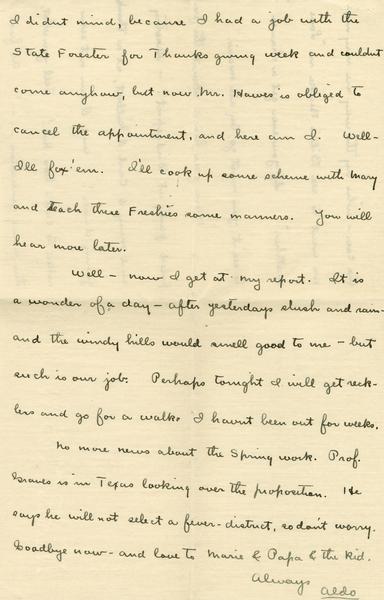 I didnt mind, because I had a job with the
State Forester for Thanksgiving week and couldnt
come anyhow, but now Mr. Hawes is obliged to
cancel the appointment, and here am I. Well-
I'll fox 'em. I'll cook up some scheme with Mary
and teach these Freshies some manners. You will
hear more later.
Well - now I get at my report. It is
a wonder of a day - after yesterdays slush and rain -
and the windy hills would smell good to me - but
such is our job. Perhaps tonight I will get reck-
less and go for a walk. I havnt been out for weeks.
No more news about the Spring work. Prof.
Graves is in Texas looking over the proposition. He
says he will not select a fever-district, so don't worry.
Goodbye now - and love to Marie & Papa & the Kid.
Always
Aldo